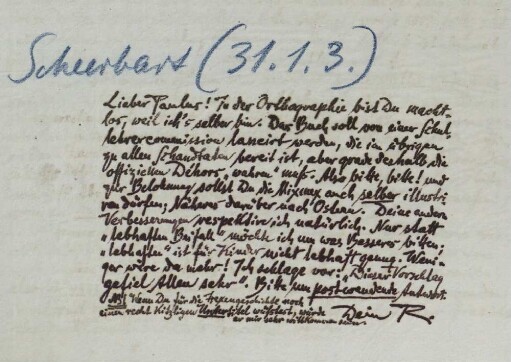 Scheerbart (31.1.3.)
Lieber Paulus! In der Orthographie bist Du macht-
los, weil ich's selber bin. Das Buch soll von einer Schul
lehrercommission lanciert werden, die im übrigen
zu allen Schandtaten bereit ist, aber grade deshalb die
offiziellen Dehors „wahren" muß. Also bitte, bitte! und
zur Belohnung sollst Du die Mixmax auch selber illustri
ren dürfen; Näheres darüber nach Ostern. Deine andern
Verbesserungen respektire ich natürlich. Nur statt
„lebhaften Beifall" möchte ich um was Bessers bitten;
„lebhaften" ist für Kinder nicht lebhaft genug. Weni-
ger wäre da mehr! Ich schlage vor: „Dieser Vorschlag
gefiel Allen sehr". Bitte um postwendende Antwort.
Dein R.
NB! Wenn Du für die Hexengeschichte noch
einen recht kitzligen Untertitel wüßtest, würde
er mir sehr willkommen sein.